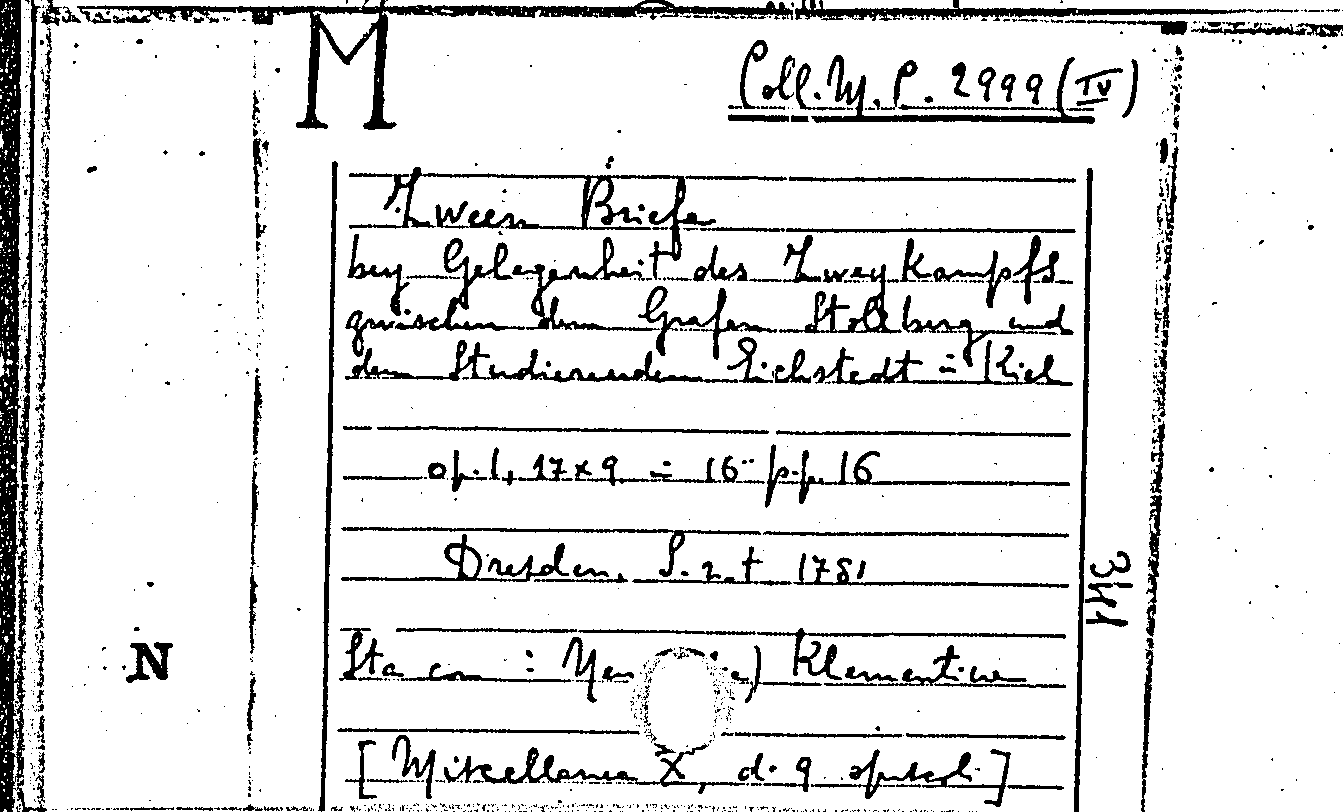 M
Coll. M. P. 2999 (IV)
Zween Briefe
bey Gelegenheit des Zweykampfs
zwischen dem Grafen Stollberg und
dem Studierenden Eichstedt in Kiel
op. 1, 17x9 in 16° pp. 16
Dresden, S.n.t 1781
344
N
Sta con : Klementine
[Miscellanea X, di 9 opuscoli]